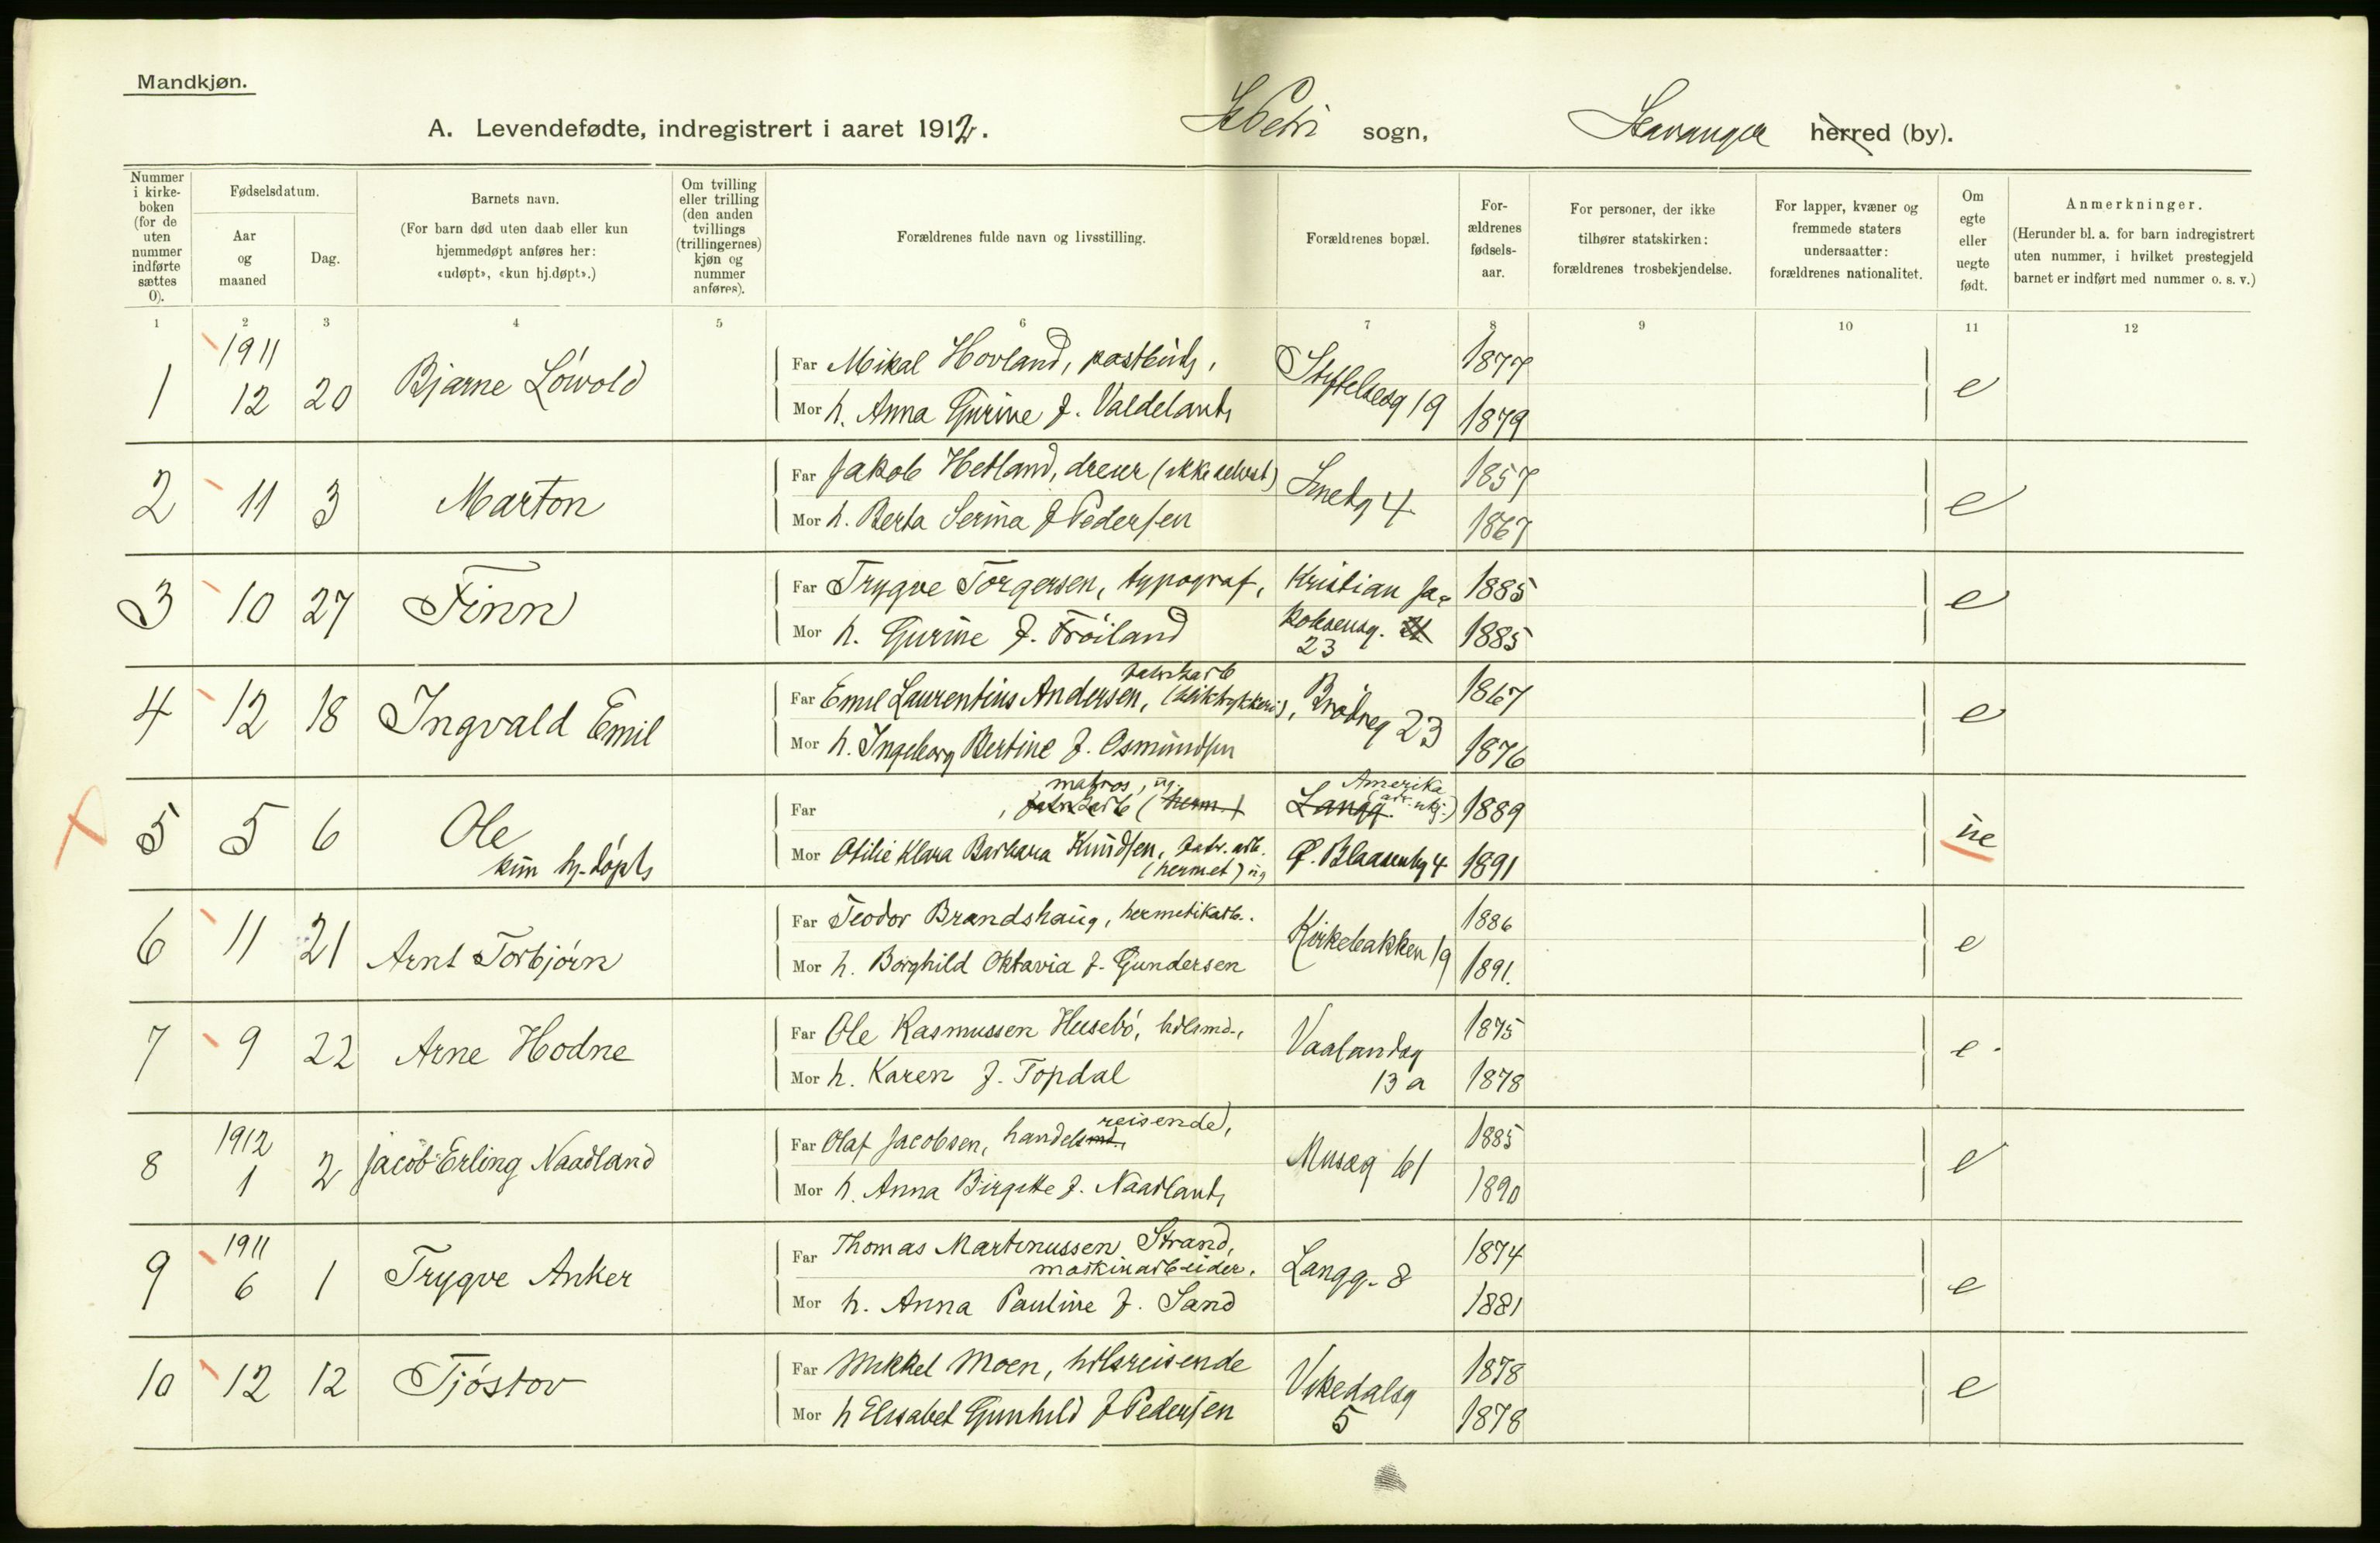 Mandkjøn.
A. Levendefødte, indregistrert i aaret 1912.
St Petri sogn, Stavanger herred (by).
Nummer i kirkeboken (for de uten nummer indførte sættes 0).
Fødselsdatum.
Aar og maaned
Dag.
Barnets navn.
(For barn død uten daab eller kun hjemmedøpt anføres her: «udøpt», «kun hj.døpt».)
Om tvilling eller trilling (den anden tvillings (trillingernes) kjøn og nummer anføres).
Forældrenes fulde navn og livsstilling.
Forældrenes bopæl.
For-ældrenes fødsels-aar.
For personer, der ikke tilhører statskirken: forældrenes trosbekjendelse.
For lapper, kvæner og fremmede staters undersaatter: forældrenes nationalitet.
Om egte eller uegte født.
Anmerkninger.
(Herunder bl. a. for barn indregistrert uten nummer, i hvilket prestegjeld barnet er indført med nummer o. s. v.)
1 2 3 4 5 6 7 8 9 10 11 12
1911
1 12 20 Bjarne Lówold
Far Mikal Hovland, postbud, Stiftelsesg 19 1877
Mor h. Anna Gurine f. Valdeland, 1879
e
2 11 3 Marton
Far Jakob Hetland, dreier (ikke selvst) Smedg 4 1857
Mor h. Berta Serina f Pedersen 1867
e
3 10 27 Finn
Far Trygve Torgersen, typograf, Kristian Ja- 1885
Mor h. Gurine f. Fróiland kobsensg. 23 1885
e
4 12 18 Ingvald Emil
fabrikarb
Far Emil Laurentius Andersen, (bliktrykkeri), Brødreg 23 1867
Mor h. Ingeborg Bertine f. Osmundsen 1876
e
5 5 6 Ole
kun hj.-døpt
matros, ug. Amerika
Far , fabrikarb (herm.) Langg. (adr. ukj.) 1889
Mor Otilie Klara Barbara Knudsen, fabr. arb. Ø. Blaasenbg 4 1891
(hermet) ug
ue
6 11 21 Arnt Torbjórn
Far Teodor Brandshaug, hermetikarb. Kirkebakken 19 1886
Mor h. Borghild Oktavia f. Gundersen 1891.
e
7 9 22 Arne Hodne
Far Ole Rasmussen Husebó, hdlsmd., Vaalandsg 1875
Mor h. Karen f. Topdal 13 a 1878
e
1912
8 1 2 Jacob Erling Naadland
reisende,
Far Olaf Jacobsen, handelsmd., Museg 61 1885
Mor h. Anna Birgitte f. Naadland, 1890
e
1911
9 6 1 Trygve Anker
Far Thomas Martinussen Strand,
maskinarbeider. Langg. 8 1874
Mor h. Anna Pauline f. Sand 1881
e
10 12 12 Tjóstov
Far Mikkel Moen, hdlsreisende Vikedalsg 1878
Mor h Elisabet Gunhild f Pedersen 5 1878
e